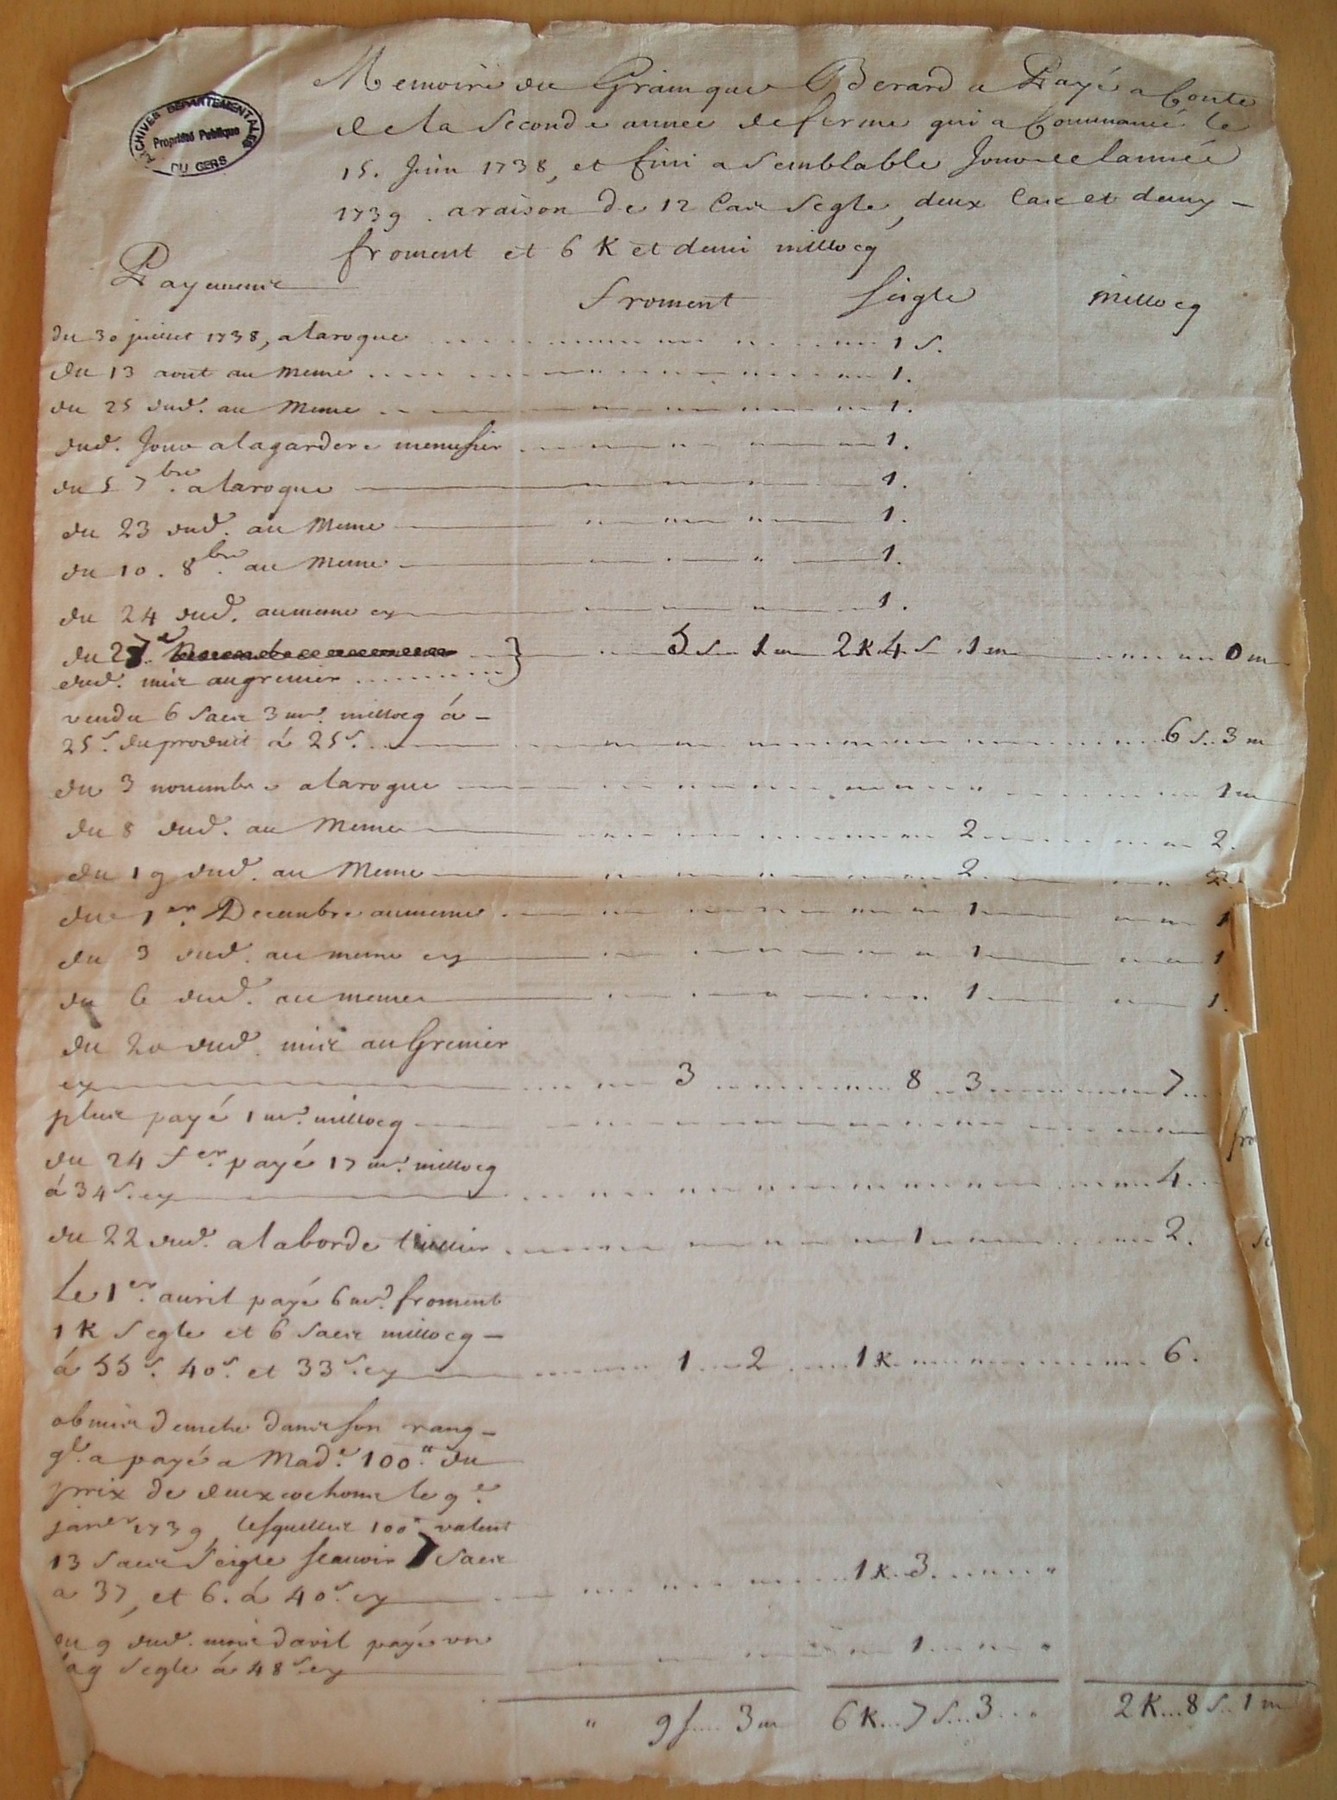 ARCHIVES DEPARTEMENTALES
Propriété Publique
DU GERS
Memoire du Grain que Berard a Payé a Conte
de la Seconde année de ferme qui a Commancé le
15. Juin 1738, et fini a Semblable Jour de lannée
1739. a raison de 12 Cars Segle, deux Cars et demy –
froment et 6 K et demi millocq
Payemens
froment seigle millocq
du 30 juillet 1738, a laroque 1 s.
du 13 aout au meme 1.
du 25 dud. au Meme 1.
dud. Jour a lagardere menusier 1.
du 5 7bre. a laroque 1.
du 23 dud. au Meme 1.
du 10. 8bre. au Meme 1.
du 24 dud. au meme cy 1.
du 27e 5 s 1 m 2 K 4 s 1 m 0 m
dud. mis au grenier
vendu 6 sacs 3 mes. millocq á –
25s. du produit á 25s. 6 s. 3 m
du 3 novembre a laroque 1 m
du 8 dud. au Meme 2 2.
du 19 dud. au Meme 2 2.
du 1er. Decembre au meme 1 1
du 3 dud. au meme cy 1 1
du 6 dud. au meme 1 1.
du 20 dud. mis au Grenier
cy 3 8 3 7
plus payé 1 me. millocq
du 24 fer. payé 17 me. millocq
á 34s. cy 4
du 22 dud. a laborde 1 2.
Le 1er. avril payé 6 me. froment
1 K Segle et 6 sacs millocq –
á 55s. 40s. et 33s. cy 1 2 1 K 6.
obmis demetre dans son rang –
ql. a payé a Made. 100# du
prix de deux cochons le 9e.
janer 1739, lesquelles 100# valent
13 sacs Seigle scavoir 7 sacs
a 37, et 6. á 40s. cy 1 K. 3
du 9 dud. mois davril payé un
sag Segle á 48s. cy 1
" 9 s 3 m 6 K 7 s 3 2 K 8 s 1 m